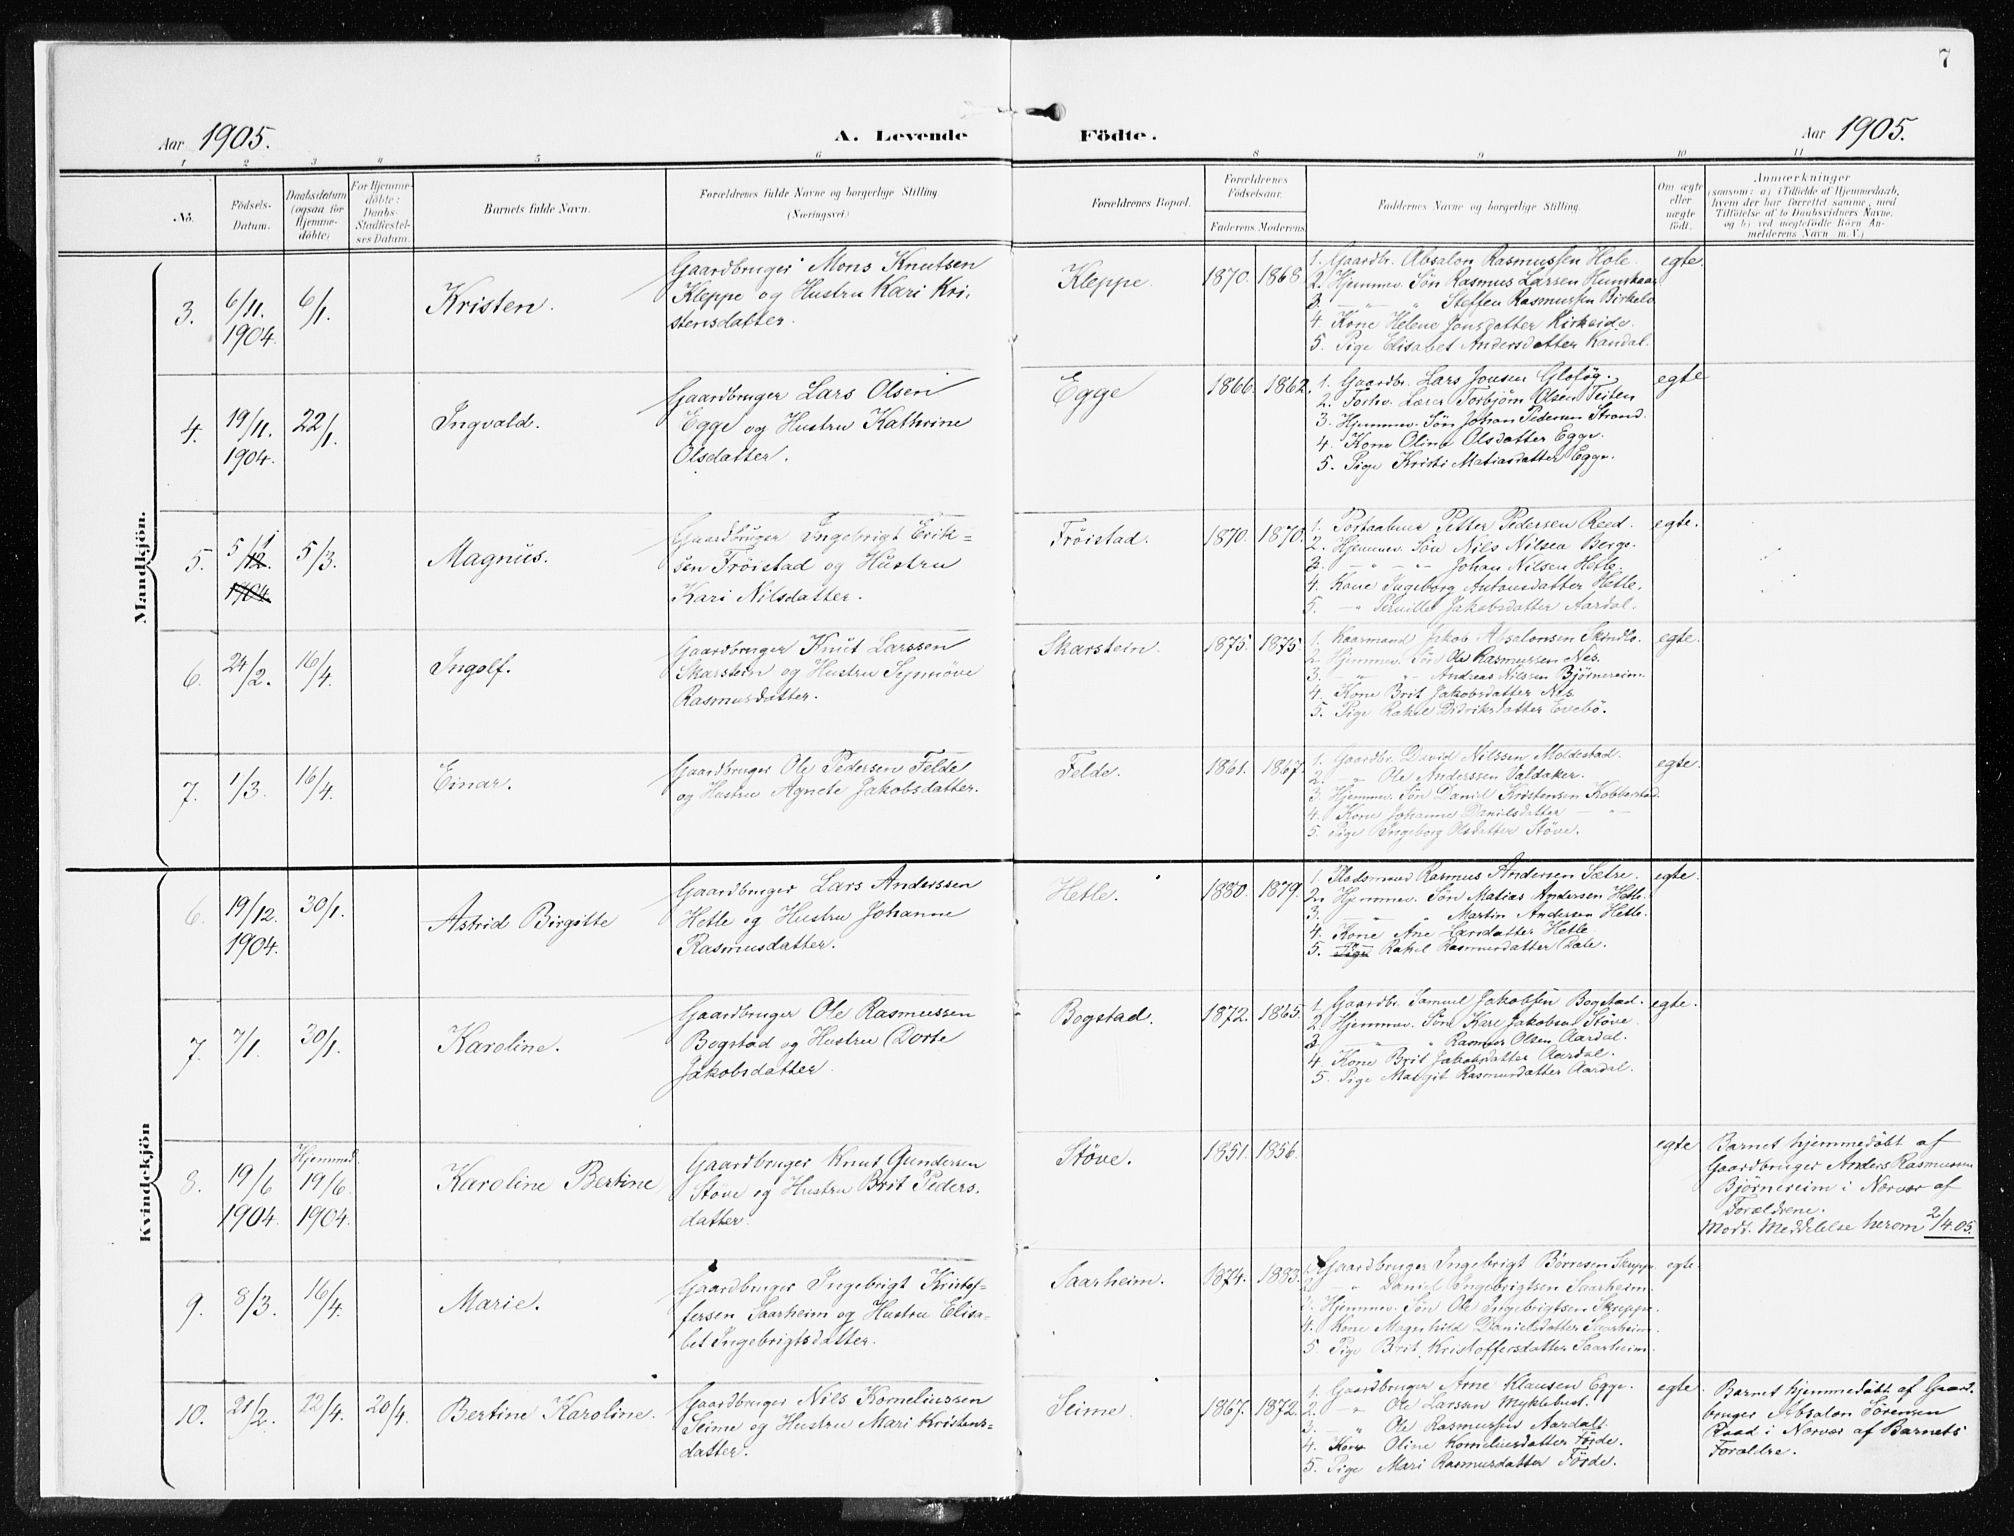 7
Aar 1905.
A. Levende
Födte.
Aar 1905.
1 2 3 4 5 6 8 9 10 11
No.
Födsels-
Datum.
Daabsdatum
(ogsaa for
Hjemme-
döbte)
For Hjemme-
döbte:
Daabs-
Stadfæstel-
ses Datum.
Barnets fulde Navn.
Forældrenes fulde Navne og borgerlige Stilling
(Næringsvei)
Forældrenes Bopæl.
Forældrenes
Födselsaar.
Faderens. Moderens.
Faddernes Navne og borgerlige Stilling.
Om ægte
eller
uægte
födt.
Anmærkninger
(saasom: a) i Tilfælde af Hjemmedaab,
hvem der har forrettet samme, med
Tilföielse af to Daabsvidners Navne,
og b) ved uegtefödte Börn An-
melderens Navn m. V.)
Mandkjön.
3.
6/11.
1904.
6/1.
Kristen.
Gaardbruger Mons Knutsen
Kleppe og Hustru Kari Kri-
stensdatter.
Kleppe.
1870. 1868.
1. Gaardbr. Absalon Rasmussen Hole.
2. Hjemmev. Søn Rasmus Larsen Hunskaar
3. — " — " Steffen Rasmussen Birkelo
4. Kone Helene Jonsdatter Kirkeide.
5. Pige Elisabet Andersdatter Kandal.
egte.
4.
19/11.
1904.
22/1.
Ingvald.
Gaardbruger Lars Olsen
Egge og Hustru Kathrine
Olsdatter.
Egge
1866. 1862.
1. Gaardbr. Lars Jonsen Gloføg.
2. Forhv. Lærer Torbjørn Olsen Teiten
3. Hjemmev. Søn Johan Pedersen Strand.
4. Kone Olina Olsdatter Egge.
5. Pige Kristi Matiasdatter Egge.
egte
5.
5/1
12.
1904.
5/3.
Magnus.
Gaardbruger Ingebrigt Erik-
sen Frøistad og Hustru
Kari Nilsdatter.
Frøistad.
1870. 1870.
1. Petter Pedersen Reed.
2. Hjemmev. Søn Nils Nilsen Bergs.
3. — " — " — Johan Nilsen Hetle.
4. Kone Ingeborg Antonsdatter Hetle.
5. — " Pernille Jakobsdatter Aardal.
egte.
6.
24/2.
16/4.
Ingolf.
Gaardbruger Knut Larssen
Skarstein og Hustru Synnöve
Rasmusdatter.
Skarstein.
1875. 1875.
1. Kaarmand Jakob Absalonsen Skindlo.
2. Hjemmev. Søn Ole Rasmussen Nes.
3. — " — " Andreas Nilssen Bjørnereim.
4. Kone Brit Jakobsdatter Nes.
5. Pige Rakel Didriksdatter Evebö.
egte.
7.
1/3.
16/4.
Einar.
Gaardbruger Ole Pedersen Felde
og Hustru Agnete Jakobsdatter.
Felde.
1861. 1867.
1. Gaardbr. David Nilssen Moldestad.
2. " Ole Anderssen Valdaker.
3. Hjemmev. Søn Daniel Kristensen Kobberstad
4. Kone Johanne Danielsdatter — " —
5. Pige Ingeborg Olsdatter Støve.
egte.
Kvindekjön
6.
19/12.
1904.
30/1.
Astrid Birgitte
Gaardbruger Lars Anderssen
Hetle og Hustru Johanne
Rasmusdatter.
Hetle.
1880. 1879.
1. Pladsmand Rasmus Andersen Sætre.
2. Hjemmev. Søn Matias Andersen Hetle.
3. — " — " Martin Andersen Hetle.
4. Kone Ane Larsdatter Hetle
5. Pige Rakel Rasmusdatter Dale.
egte.
7.
7/1.
30/1.
Karoline.
Gaardbruger Ole Rasmussen
Bogstad og Hustru Dorte
Jakobsdatter.
Bogstad.
1872. 1865.
1. Gaardbr. Samuel Jakobsen Bogstad.
2. Hjemmev. Søn Karl Jakobsen Støve.
3. — " — " Rasmus Olsen Aardal.
4. Kone Brit Jakobsdatter Aardal.
5. Pige Margit Rasmusdatter Aardal.
egte.
8.
19/6
1904.
Hjemmed.
19/6.
1904.
Karoline Bertine
Gaardbruger Knut Gundersen
Støve og Hustru Brit Peders-
datter.
Støve.
1851. 1856.
egte
Barnet hjemmedøbt af
Gaardbruger Anders Rasmussen
Bjørnereim i Nærvær af
Forældrene.
Modt. Meddelelse herom 2/4.05.
9.
8/3.
16/4.
Marie.
Gaardbruger Ingebrigt Kristof-
fersen Saarheim og Hustru Elisa-
bet Ingebrigtsdatter.
Saarheim.
1874. 1883.
1. Gaardbruger Ingebrigt Børresen Skeppe
2. — " Daniel Ingebrigtsen Saarheim.
3. Hjemmev. Søn Ole Ingebrigtsen Skreppe.
4. Kone Magnhild Danielsdatter Saarheim.
5. Pige Brit Kristoffersdatter Saarheim.
egte.
10.
21/2.
22/4.
20/4.
Bertine Karoline.
Gaardbruger Nils Korneliussen
Seime og Hustru Mari Kristens-
datter.
Seime.
1867. 1872.
1. Gaardbruger Arne Klausen Egge.
2. — " Ole Larssen Myklebust.
3. — " Ole Rasmussen Aardal.
4. Kone Oline Korneliusdatter Førde.
5. Pige Mari Rasmusdatter Førde.
egte
Barnet hjemmedøbt af Gaard-
bruger Absalon Sørensen
Raad i Nærvær af Barnets
Forældre.